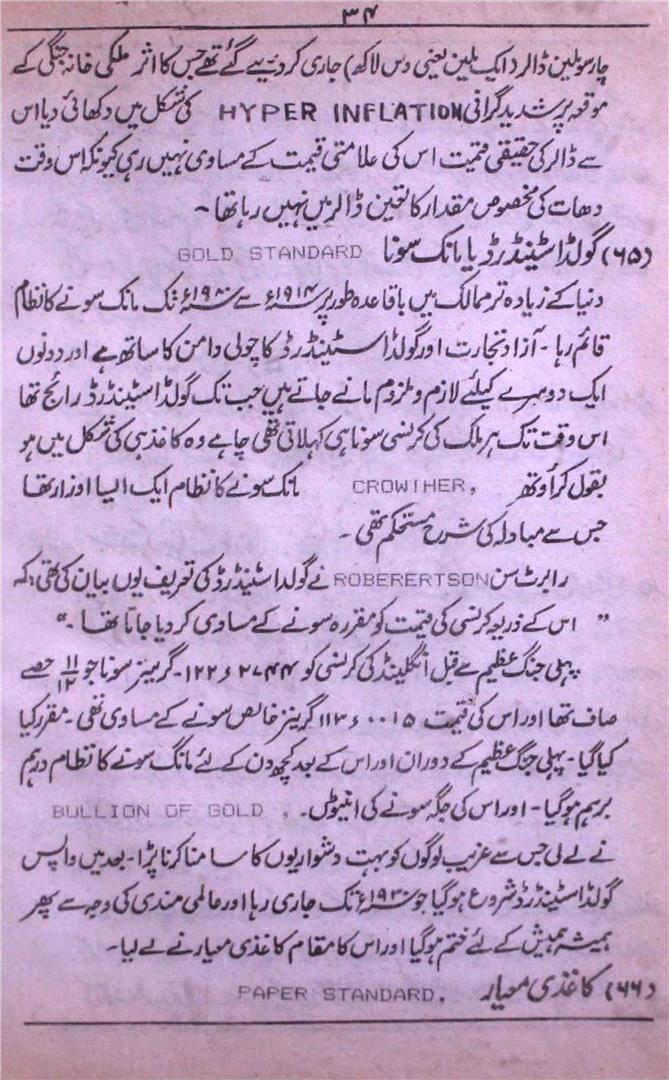 ۳۴
چار سو بلین ڈالر (ایک بلین یعنی دس لاکھ) جاری کر دیے گئے تھے جس کا اثر ملکی خانہ جنگی کے
موقعہ پر شدید گرانی HYPER INFLATION کی شکل میں دکھائی دیا اس
سے ڈالر کی حقیقی قیمت اس کی علامتی قیمت کے مساوی نہیں رہی کیونکہ اس وقت
دھات کی مخصوص مقدار کا تعین ڈالر میں نہیں رہا تھا ۔
(۶۵) گولڈ اسٹینڈرڈ یا مانک سونا GOLD STANDARD
دنیا کے زیادہ تر ممالک میں باقاعدہ طور پر ۱۹۱۴ء سے ۱۹۸۰ء تک مانک سونے کا نظام
قائم رہا ۔ آزاد تجارت اور گولڈ اسٹینڈرڈ کا چولی دامن کا ساتھ ہے اور دونوں
ایک دوسرے کیلئے لازم و ملزوم مانے جاتے ہیں جب تک گولڈ اسٹینڈرڈ رائج تھا
اس وقت تک ہر ملک کی کرنسی سونا ہی کہلاتی تھی چاہے وہ کاغذ ہی کی شکل میں ہو
بقول کراؤتھر CROWIHER, مانک سونے کا نظام ایک ایسا اوزار تھا
جس سے مبادلہ کی شرح مستحکم تھی ۔
رابرٹ سن ROBERERTSON نے گولڈ اسٹینڈرڈ کی تعریف یوں بیان کی تھی کہ
" اس کے ذریعہ کرنسی کی قیمت کو مقررہ سونے کے مساوی کر دیا جاتا تھا ۔"
پہلی جنگ عظیم سے قبل انگلینڈ کی کرنسی کو ۱۲۲ء۲۷۴۴ ۔ گرینز سونا جو ۱۱/۱۲ حصے
صاف تھا اور اس کی قیمت ۱۱۳ء۰۰۱۵ گرینز خالص سونے کے مساوی تھی ۔ مقرر کیا
کیا گیا ۔ پہلی جنگ عظیم کے دوران اور اس کے بعد کچھ دن کے لئے مانگ سونے کا نظام درہم
برہم ہو گیا ۔ اور اس کی جگہ سونے کی اینٹوں۔ BULLION OF GOLD ,
نے لے لی جس سے غریب لوگوں کو بہت دشواریوں کا سامنا کرنا پڑا ۔ بعد میں واپس
گولڈ اسٹینڈرڈ شروع ہو گیا جو ۱۹۳۰ء تک جاری رہا اور عالمی مندی کی وجہ سے پھر
ہمیشہ ہمیش کے لئے ختم ہو گیا اور اس کا مقام کاغذی معیار نے لے لیا ۔
(۶۶) کاغذی معیار PAPER STANDARD.